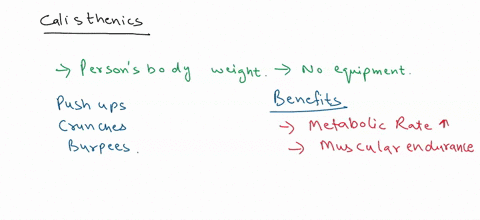 Calisthenics
→ Person's body weight. → No equipment.
Push ups
Crunches
Burpees.
Benefits
→ Metabolic Rate ↑
→ Muscular endurance